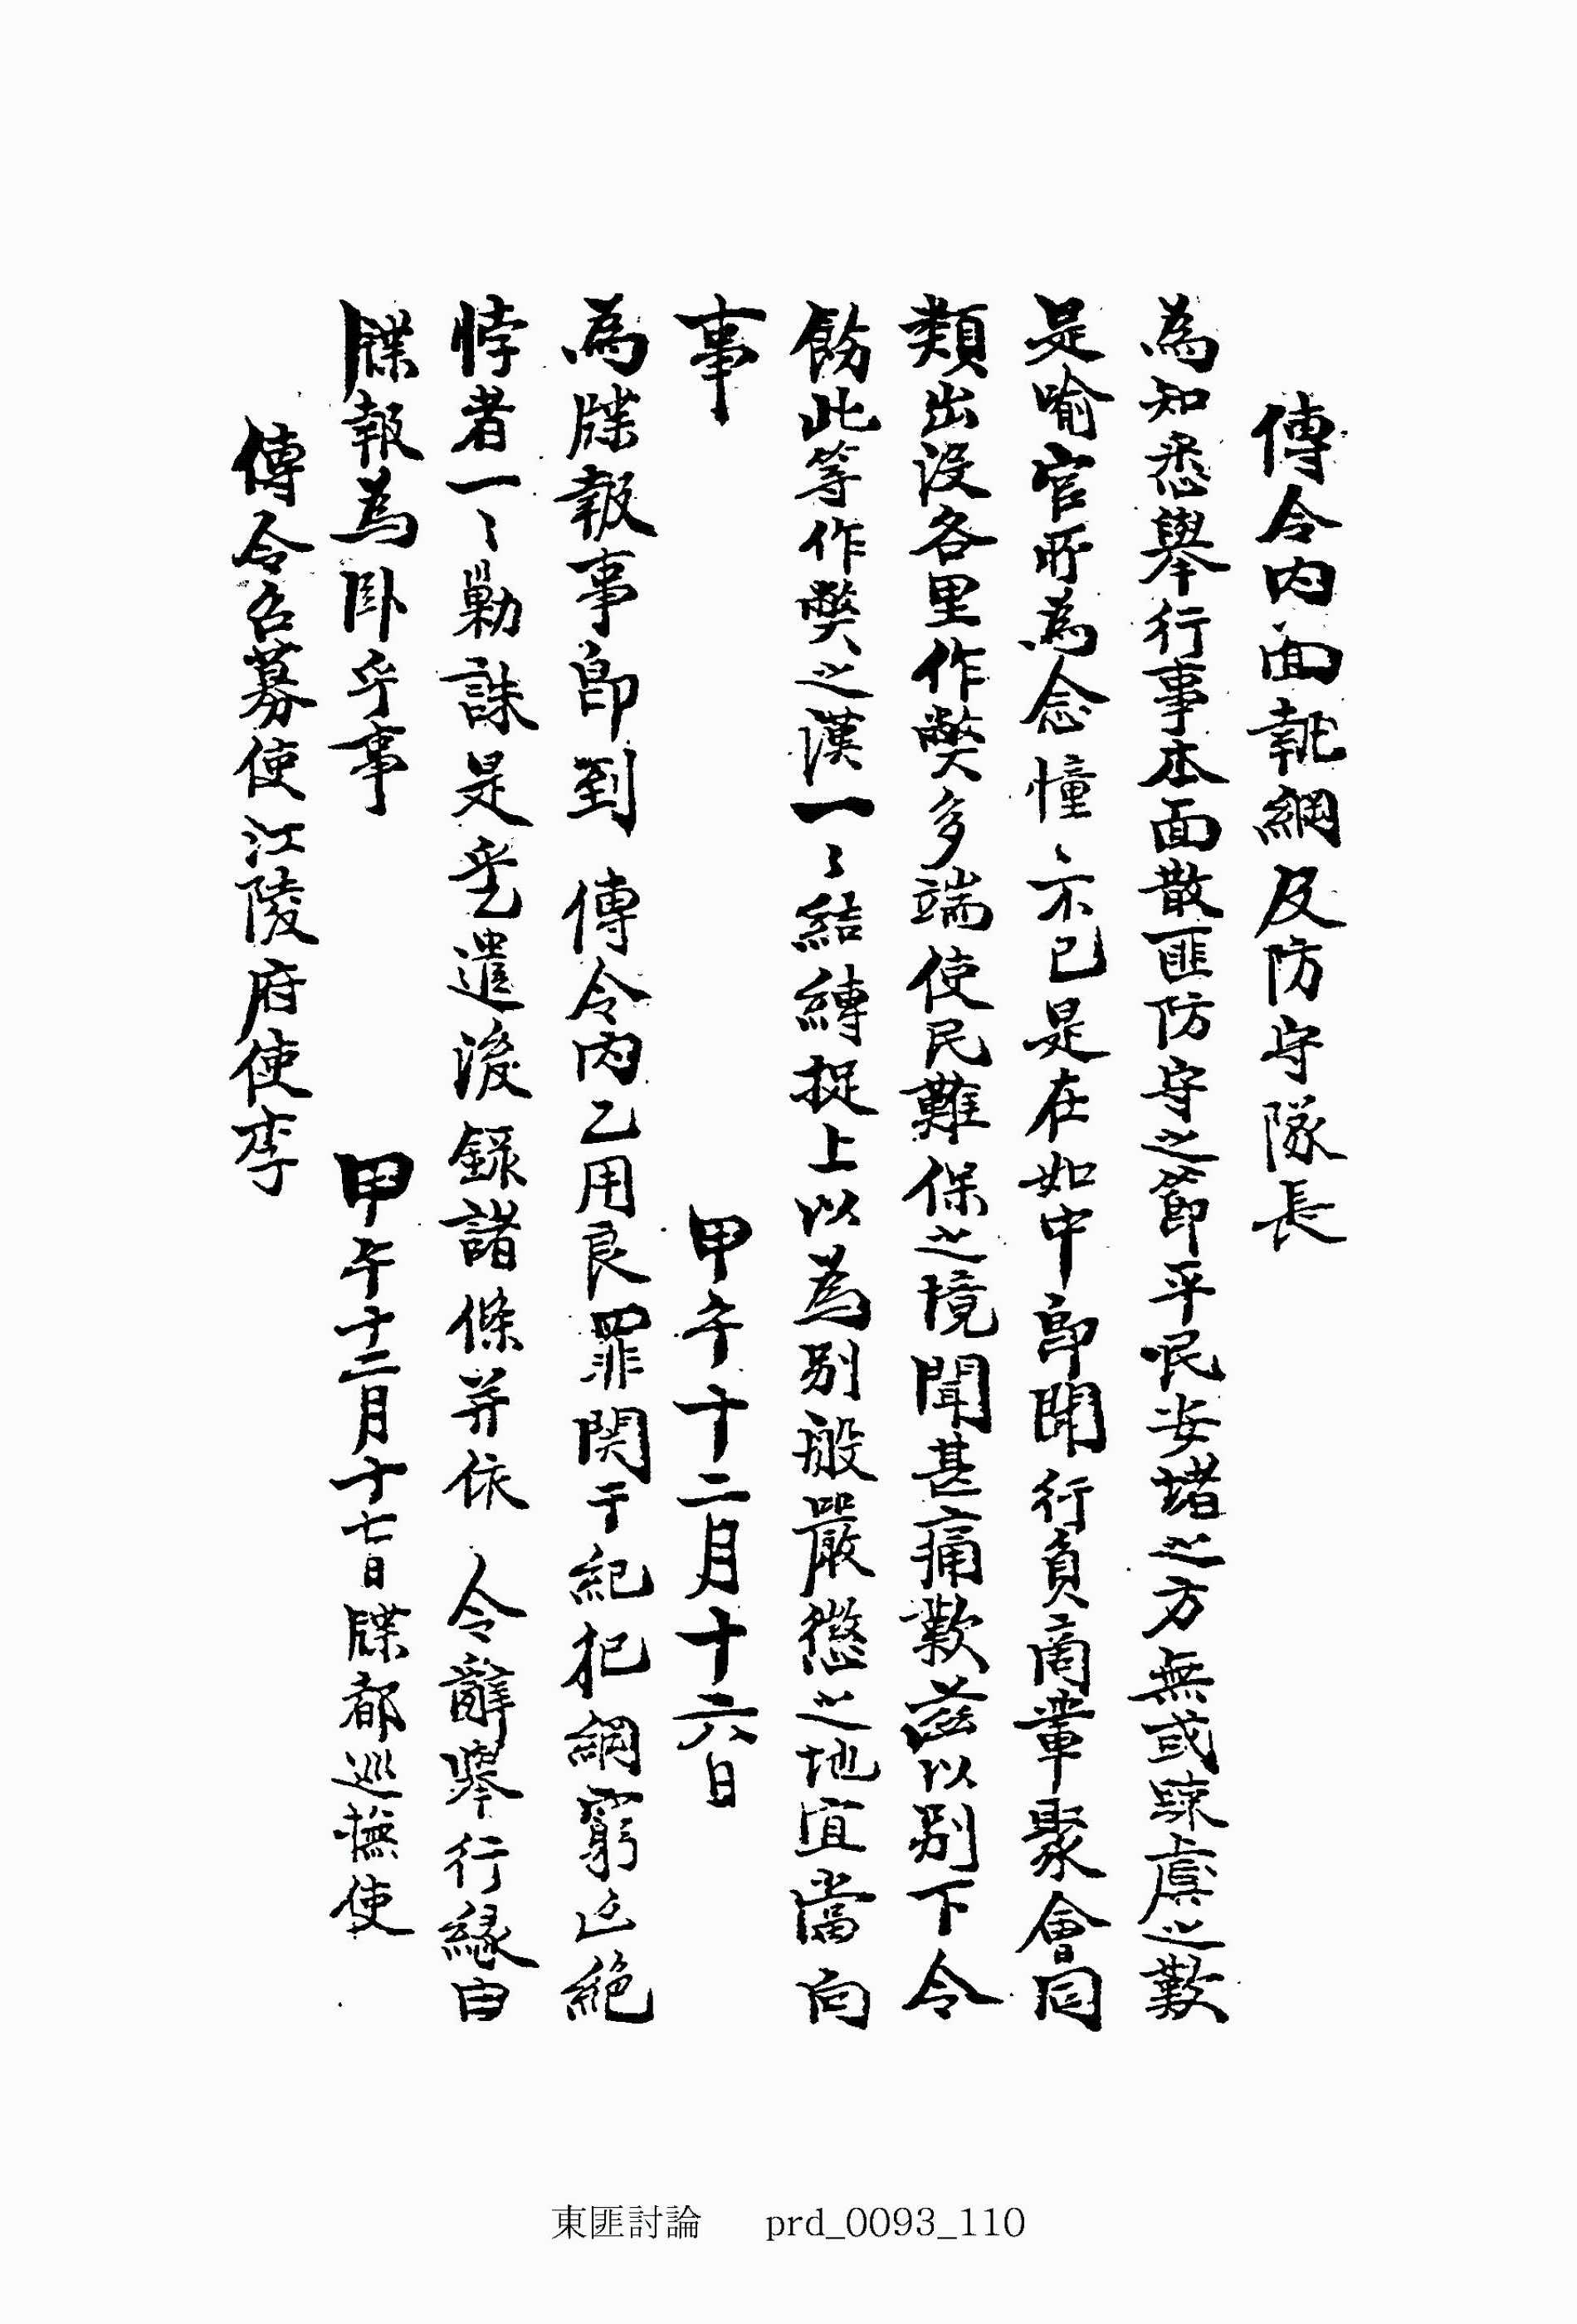 傳令內面執綱及防守隊長
為知悉擧行事本面散匪防守之節平民安堵之方無或踈虞之歎
是喩官所為念憧〻不已是在如中卽聞行負商輩聚會同
類出沒各里作獘多端使民難保之境聞甚痛歎茲以別下令
飭此等作獘之漢一〻結縛捉上以為別般嚴懲之地宜當向
事　甲午十二月十六日
為牒報事卽到　傳令內乙用良罪関于紀犯綱窮凶絶
悖者一〻勦誅是乎乙遣後錄諸條并依　令辭擧行緣由
牒報為臥乎事　甲午十二月十七日牒都巡撫使
傳令召募使江陵府使李
東匪討論　prd_0093_110